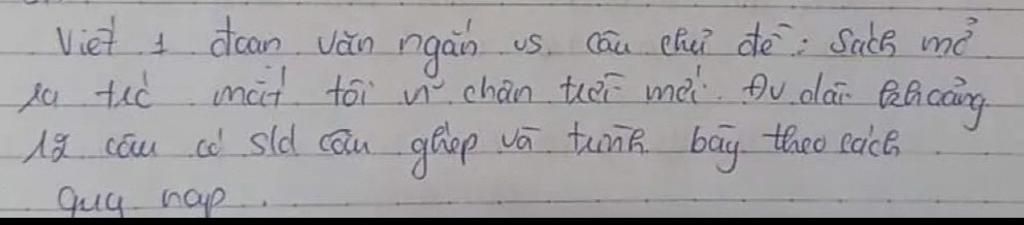 Viết 1 đoạn văn ngắn vs. câu chủ đề: Sách mở
ra trc mắt tôi n~ chân trời mới. Độ dài khoảng
12 câu có sd câu ghép và trình bày theo cách
quy nạp.